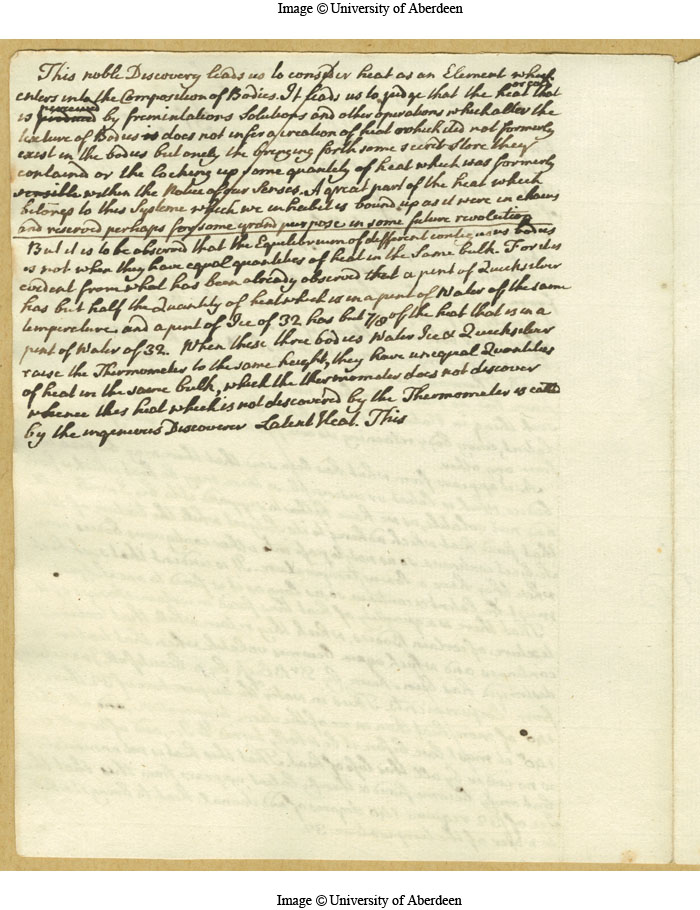 Image © University of Aberdeen
This noble Discovery leads us to consider heat as an Element which
enters into the Composition of Bodies. It leads us to judge that the heat or cold that
is perceived by fermentations Solutions and other operations which alter the
texture of Bodies does not infer a creation of heat which did not formerly
exist in the bodies but onely the bringing forth some secret store they
containd or the locking up some quantety of heat which was formerly
sensible within the Notice of our Senses. A great part of the heat which
belongs to this Systeme which we inhabit is bound up as it were in chains
and reserved perhaps for some grand purpose in some future revolution
But it is to be observed that the Equilibrium of different contiguous bodies
is not when they have equal quantities of heat in the Same bulk. For it is
evident from what has been already observed that a pint of Quicksilver
has but half the Quantity of heat which is in a pint of Water of the same
temperature. and a pint of Ice of 32 has but 7/8 of the heat that is in a
pint of Water of 32. When these three bodies Water Ice & Quicksilver
raise the Thermometer to the same height, they have unequal Quantities
of heat in the same bulk, which the thermometer does not discover
whence this heat which is not discovered by the Thermometer is calld
by the ingenious Discoverer Latent Heat. This
Image © University of Aberdeen